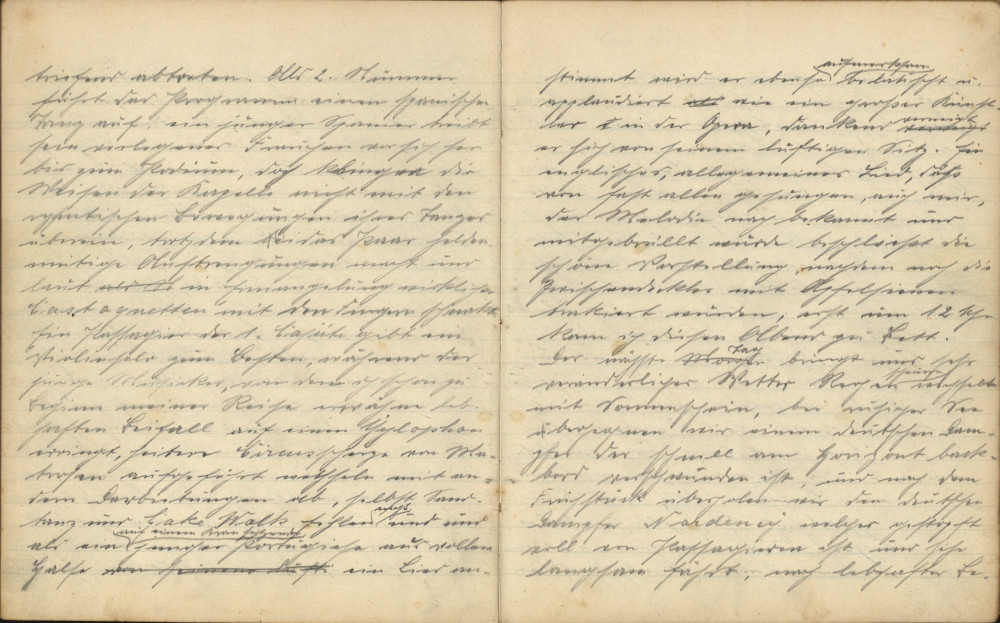 triefend abtreten. Als 2. Nummer
führt das Programm einen spanischen
Tanz auf, ein junger Spanier treibt
sein verlegenes Frauchen vor sich her
bis zum Podium, doch klingen die
Weisen der Kapelle nicht mit den
exotischen Bewegungen ihres Tanzes
überein, trotzdem das Paar helden-
mütige Anstrengungen macht und
laut als in Ermangelung wirklicher
Castagnetten mit den Fingern schnalzt.
Ein Passagier der 1. Cajüte gibt ein
Violinsolo zum Besten, während der
junge Musiker, von dem ich schon zu
Beginn meiner Reise erwähne leb-
haften Beifall auf einem Xylophon
erringt, heitere Scherze von Ma-
trosen aufgeführt wechseln mit an-
dern Darbietungen ab, selbst Sand-
tanz und Cake Walk fehlen nicht und
als ein auf einem Kran sitzender junger Portugiese aus vollem
Halse von seinem lufti ein Lied an-
stimmt wird er ebenso aufmerksam belauscht u.
applaudiert als wie ein großer Künst-
ler in der Opera, dankend verneigt
er sich von seinem luftigen Sitz. Ein
englisches, allgemeines Lied, das
von fast allen gesungen, auch mir,
der Melodie nach bekannt und
mitgebrüllt wurde beschließt die
schöne Vorstellung, nachdem noch die
Zwischendeckler mit Apfelsinen
traktiert wurden, erst um 12 Uhr
kam ich diesen Abend zu Bett.
Der nächste Morgen Tag bringt uns sehr
veränderliches Wetter Regenschauer wechseln
mit Sonnenschein, bei ruhiger See
überholen wir einen deutschen Dam-
pfer der schnell am Horizont back-
bord verschwunden ist, und nach dem
Frühstück überholen wir den deutschen
Dampfer Norderney welcher gestopft
voll von Passagieren ist und sehr
langsam fährt; nach lebhafter Be-